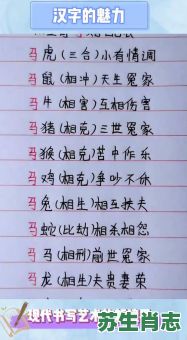 汉字的魅力
马虎(三合)小有情调
马鼠(相冲)天生冤家
马牛(相害)互相伤害
马猪(相克)三世冤家
马猴(相克)苦中作乐
马鸡(相克)争吵不休
马兔(相生)相互扶夫
马蛇(比劫)相杀相怨
马马(相刑)前世冤家
马龙(相生)夫贵妻荣
现代书写艺术
苏生肖志